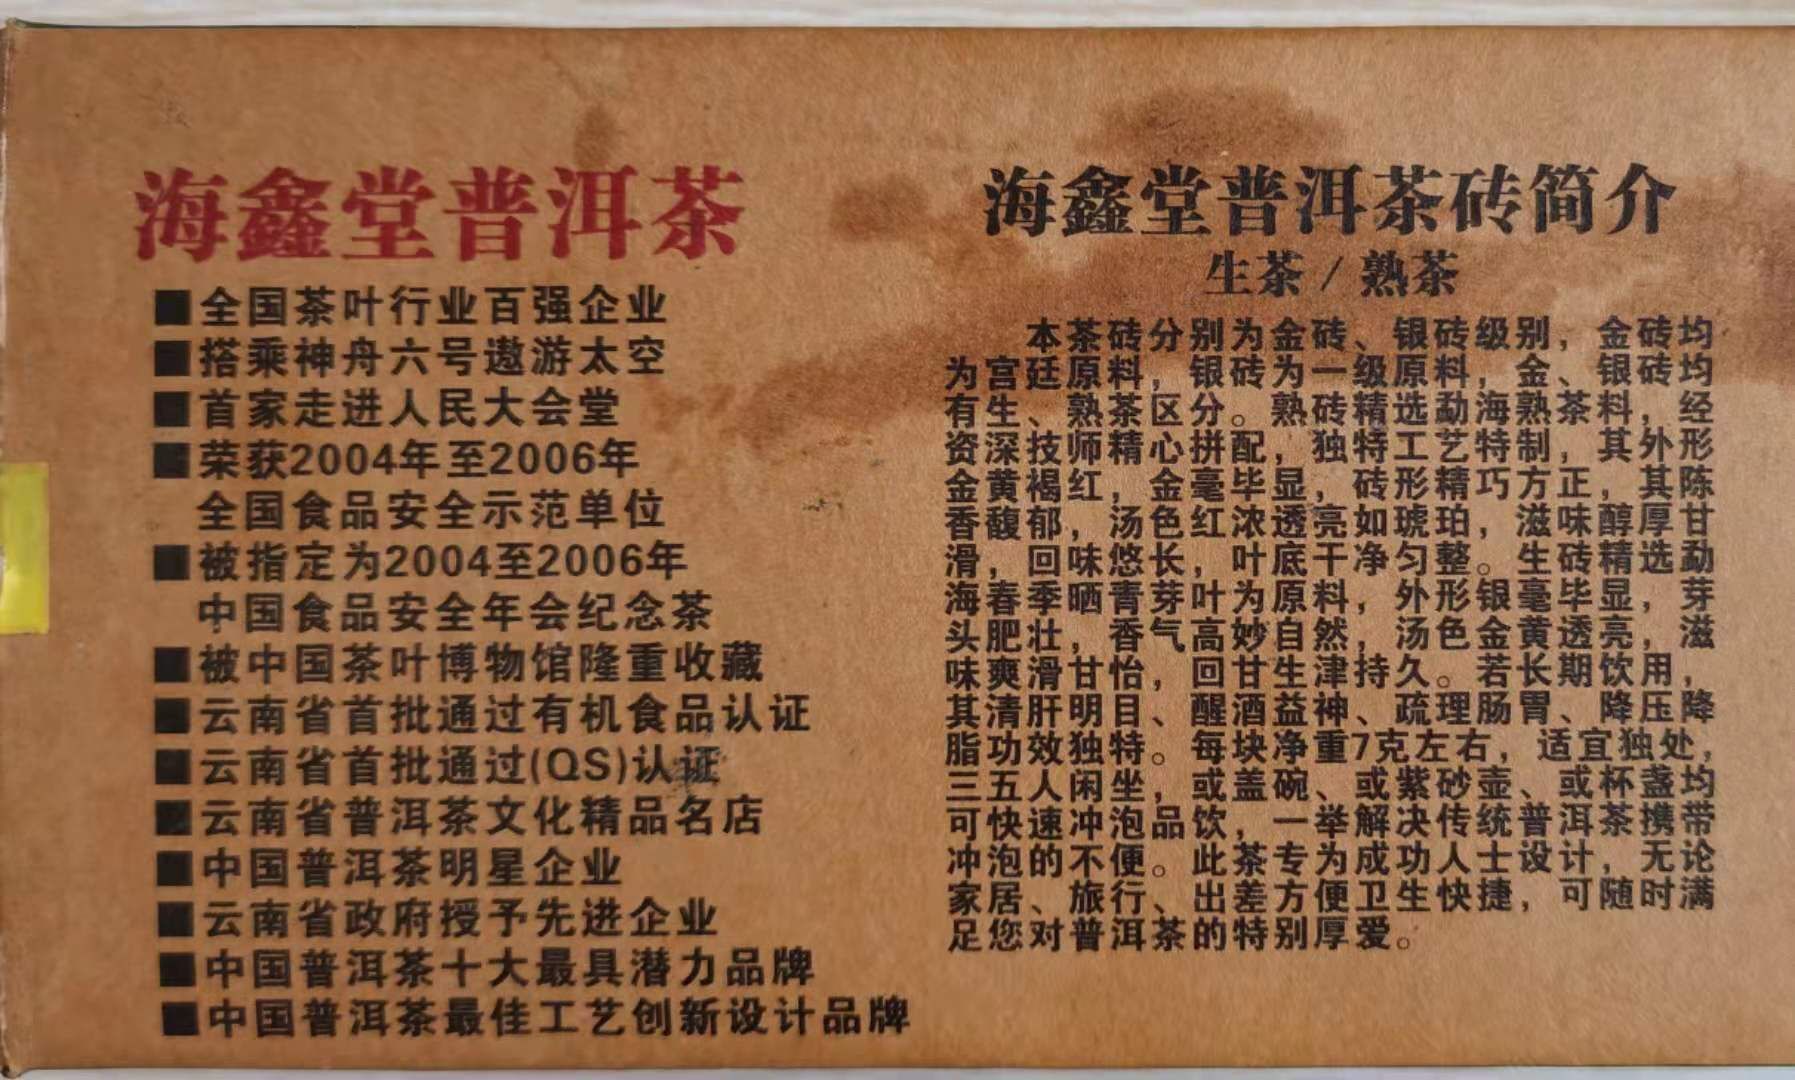 海鑫堂普洱茶
■全国茶叶行业百强企业
■搭乘神舟六号遨游太空
■首家走进人民大会堂
■荣获2004年至2006年
全国食品安全示范单位
■被指定为2004至2006年
中国食品安全年会纪念茶
■被中国茶叶博物馆隆重收藏
■云南省首批通过有机食品认证
■云南省首批通过(QS)认证
■云南省普洱茶文化精品名店
■中国普洱茶明星企业
■云南省政府授予先进企业
■中国普洱茶十大最具潜力品牌
■中国普洱茶最佳工艺创新设计品牌
海鑫堂普洱茶砖简介
生茶 / 熟茶
本茶砖分别为金砖、银砖级别，金砖均
为宫廷原料，银砖为一级原料，金、银砖均
有生、熟茶区分。熟砖精选勐海熟茶料，经
资深技师精心拼配，独特工艺特制，其外形
金黄褐红，金毫毕显，砖形精巧方正，其陈
香馥郁，汤色红浓透亮如琥珀，滋味醇厚甘
滑，回味悠长，叶底干净匀整。生砖精选勐
海春季晒青芽叶为原料，外形银毫毕显，芽
头肥壮，香气高妙自然，汤色金黄透亮，滋
味爽滑甘怡，回甘生津持久。若长期饮用，
其清肝明目、醒酒益神、疏理肠胃、降压降
脂功效独特。每块净重7克左右，适宜独处，
三五人闲坐，或盖碗、或紫砂壶、或杯盏均
可快速冲泡品饮，一举解决传统普洱茶携带
冲泡的不便。此茶专为成功人士设计，无论
家居、旅行、出差方便卫生快捷，可随时满
足您对普洱茶的特别厚爱。